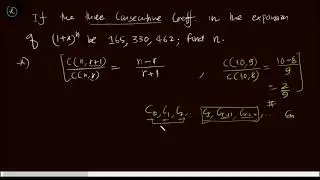 (x) If the three consecutive coeff. in the expansion
of (1+x)^n be 165, 330, 462; find n.
*) [ C(n,r+1) / C(n,r) = n-r / r+1 ] , C(10,9) / C(10,8) = 10-8 / 9
= 2 / 9
C₀, C₁, C₂, .. Cᵣ, Cᵣ₊₁, Cᵣ₊₂, .. Cₙ